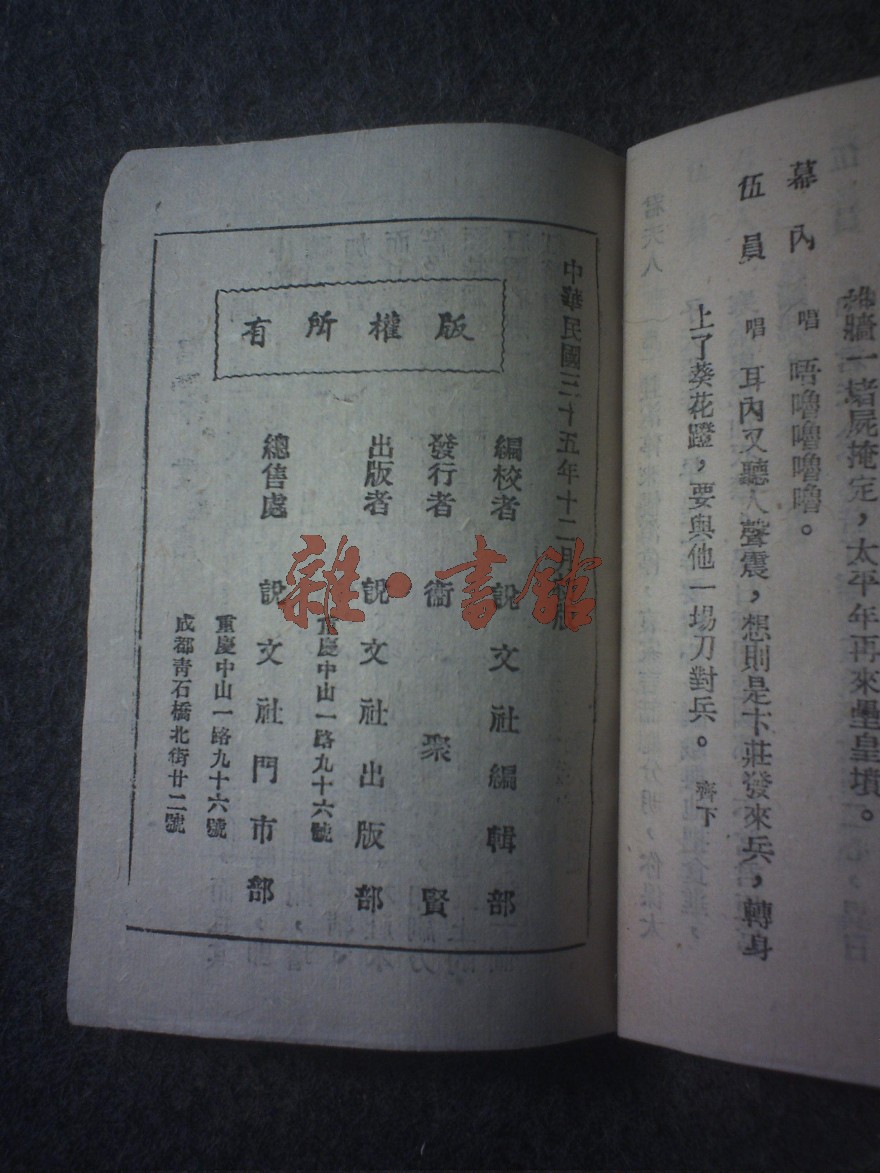 推牆一堵屍掩定，太平年再來壘皇墳。
幕內　唱　唔嚕嚕嚕嚕。
伍員　唱　耳內又聽人聲震，想則是卞莊發來兵，轉身
上了葵花蹬，要與他一場刀對兵。　齊下
中華民國三十五年十二月　版
有所權版
編校者　說文社編輯部
發行者　衞聚賢
出版者　說文社出版部
重慶中山一路九十六號
總售處　說文社門市部
重慶中山一路九十六號
成都青石橋北街廿二號
雜·書館